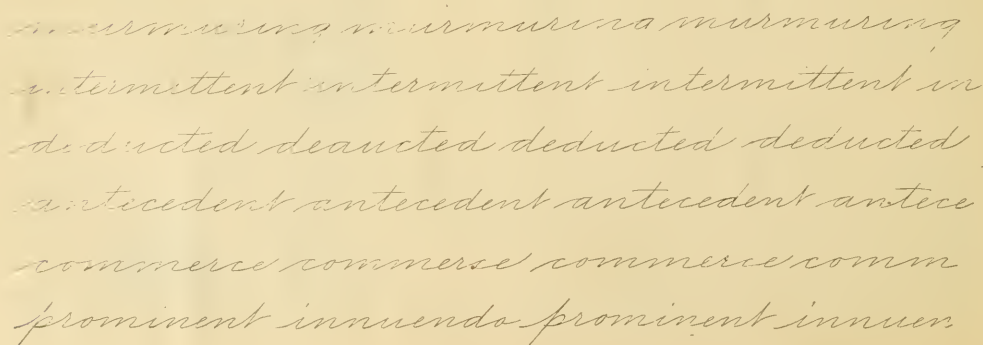 murmuring murmuring murmuring
intermittent intermittent intermittent in
deducted deducted deducted deducted
antecedent antecedent antecedent antece
commerce commerse commerce comm
prominent innuendo prominent innuen